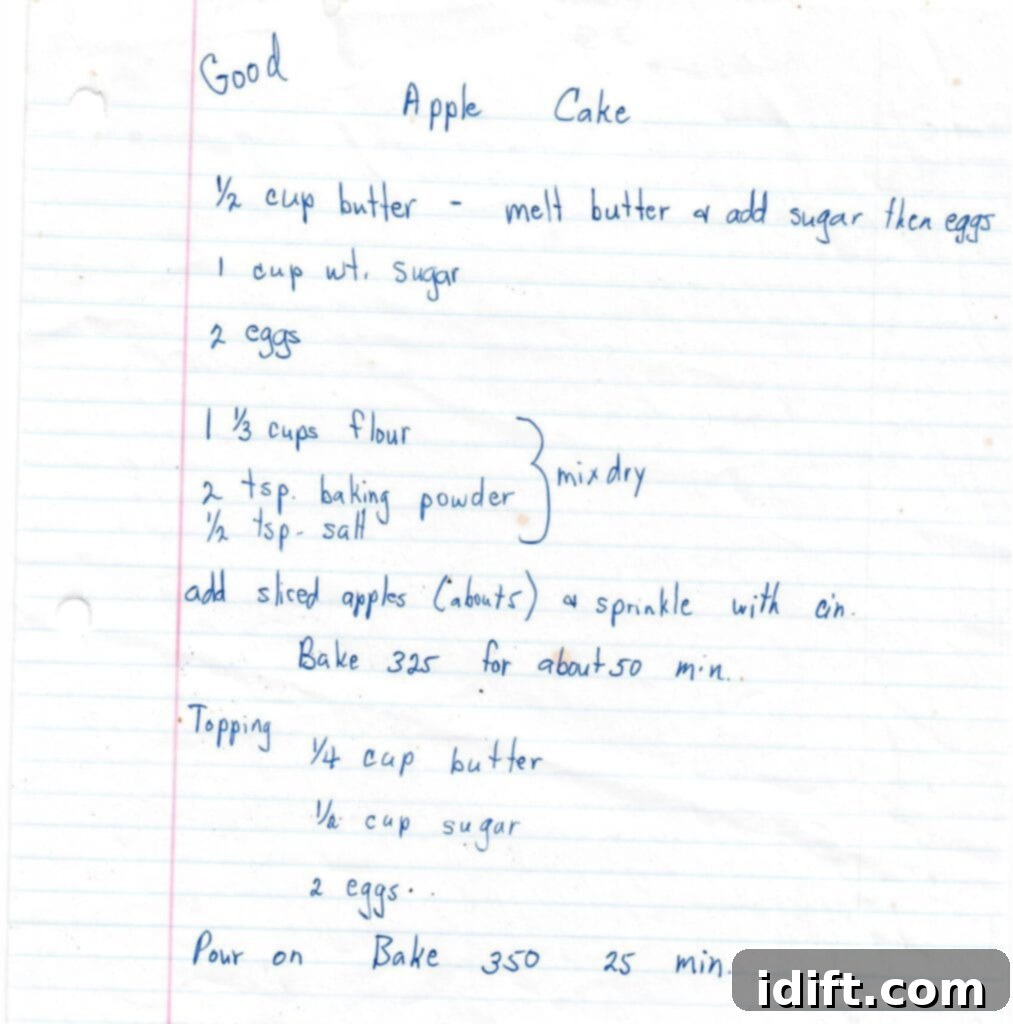 Good
Apple Cake
½ cup butter - melt butter & add sugar then eggs
1 cup wt. sugar
2 eggs
1 ⅓ cups flour
2 tsp. baking powder
mix dry
½ tsp. salt
add sliced apples (about 5) & sprinkle with cin.
Bake 325 for about 50 min.
Topping
¼ cup butter
½ cup sugar
2 eggs.
Pour on Bake 350 25 min.
idift.com